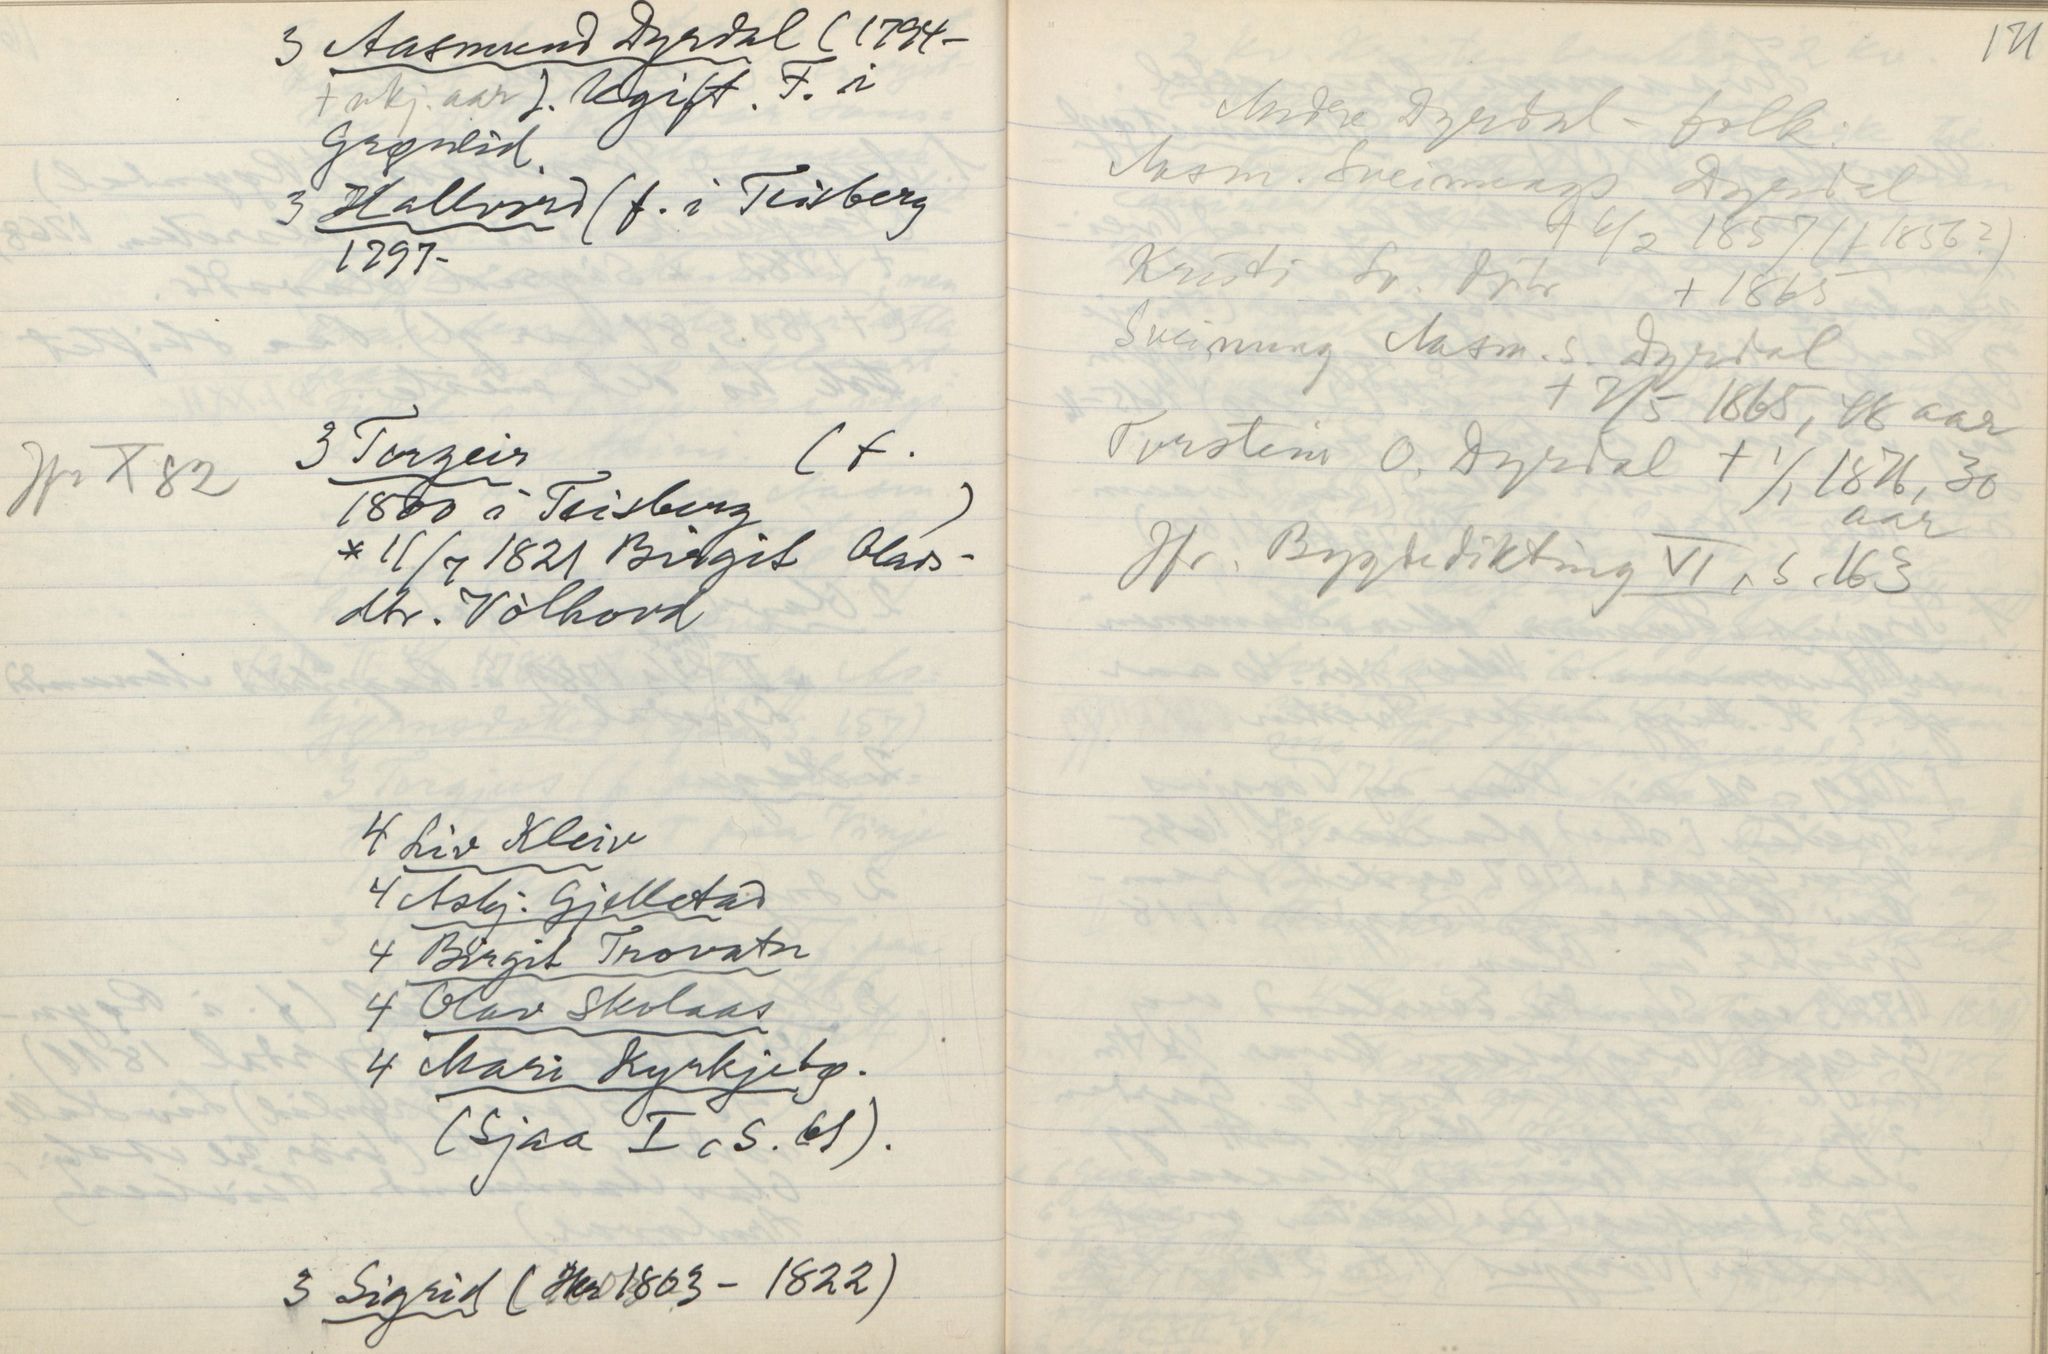 3 Aasmund Dyrdal (1794-
+ nkj. aar). Ugift. F. i
Grønlid.
3 Hallvord (f. i Teisberg
1797-
Jfr X 82
3 Torgeir (f.
1800 i Teisberg )
* 11/7 1821 Birgit Olavs-
dtr. Vòlhovd
4 Liv Kleiv
4 Asbj. Gjellstad
4 Birgit Trovatn
4 Olav Skolaas
4 Mari Kyrkjebø.
(Sjaa I, S. 61).
3 Sigrid ( 1803 - 1822)
171
Andre Dyrdal-folk:
Aasm. Sveinungs Dyrdal
+ 6/2 1857 (f 1856?)
Kristi Sv. Dtr + 1865
Sveinung Aasm.s. Dyrdal
+ 2/5 1865, 48 aar
Torstein O. Dyrdal + 1/1 1876, 30
aar
Jfr. Bygdedikting VI, s. 163